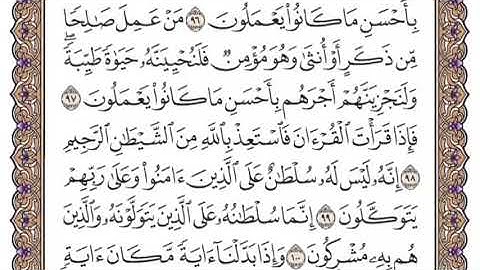 بِأَحْسَنِ مَا كَانُوا۟ يَعْمَلُونَ ٩٦ مَنْ عَمِلَ صَـٰلِحًا
مِّن ذَكَرٍ أَوْ أُنثَىٰ وَهُوَ مُؤْمِنٌ فَلَنُحْيِيَنَّهُۥ حَيَوٰةً طَيِّبَةً ۖ
وَلَنَجْزِيَنَّهُمْ أَجْرَهُم بِأَحْسَنِ مَا كَانُوا۟ يَعْمَلُونَ ٩٧
فَإِذَا قَرَأْتَ ٱلْقُرْءَانَ فَٱسْتَعِذْ بِٱللَّهِ مِنَ ٱلشَّيْطَـٰنِ ٱلرَّجِيمِ
٩٨ إِنَّهُۥ لَيْسَ لَهُۥ سُلْطَـٰنٌ عَلَى ٱلَّذِينَ ءَامَنُوا۟ وَعَلَىٰ رَبِّهِمْ
يَتَوَكَّلُونَ ٩٩ إِنَّمَا سُلْطَـٰنُهُۥ عَلَى ٱلَّذِينَ يَتَوَلَّوْنَهُۥ وَٱلَّذِينَ
هُم بِهِۦ مُشْرِكُونَ ١٠٠ وَإِذَا بَدَّلْنَآ ءَايَةً مَّكَانَ ءَايَةٍ